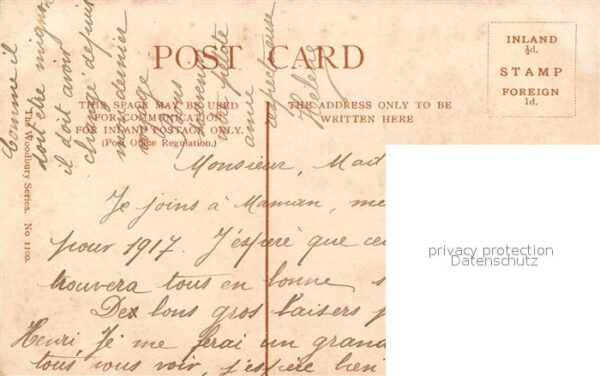 POST CARD
THIS SPACE MAY BE USED
FOR COMMUNICATION
FOR INLAND POSTAGE ONLY.
(Post Office Regulation.)
THE ADDRESS ONLY TO BE
WRITTEN HERE
INLAND
½d.
STAMP
FOREIGN
1d.
The Woodbury Series. No 1100.
Monsieur, Mad
Je joins à Maman, me
pour 1917. J'espère que ce
trouvera tous en bonne s
Des bons gros baisers p
Henri. Je me ferai un grand
tous vous voir, j'espère bien
Comme il
doit être mignon
il doit avoir
changé depuis
mon dernier
voyage
votre petite
amie
respectueuse
Hélène
privacy protection
Datenschutz